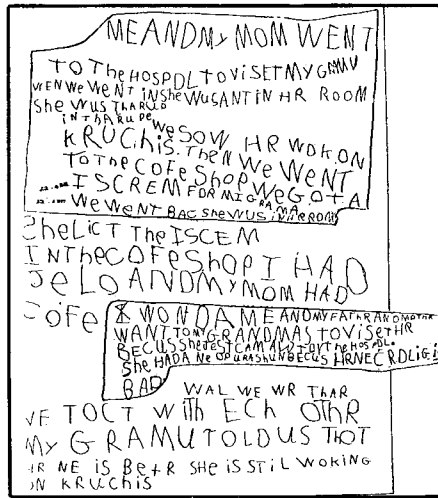 MEANDMY MOM WENT
TO The HOSPDL TO ViSET MY GRMU
WEN WE WENT iN She WUSANT iN HR ROOM
She WUS ThARUP
IN THARUPE
We SOW HR WOKON
KRUChiS. TheN We WENT
TO The COFE ShOP We GOT A
ISCREM FOR MI GRAMA
We WENT BAC She WUS iN HR ROOM
SheLiCT The ISCEM
INThe COFeShOP I HAD
JeLO ANDMY MOM HAD
COiFe
WON DA ME AND MY FATHR AND MOTHR
WANT TO MY GRANDMAS TO ViSET HR
BECUSS She JEST CAM ALD FOV The HOSPDL.
She HAD A Ne OPURAShUN BECUS HR NEC RDLiG iS
BAD
WAL WE WR THAR
WE TOCT With ECh OThR
My GRAMU TOLD US ThOT
HR NE iS BeTR SHe iS STiL WOKING
ON KRUChiS